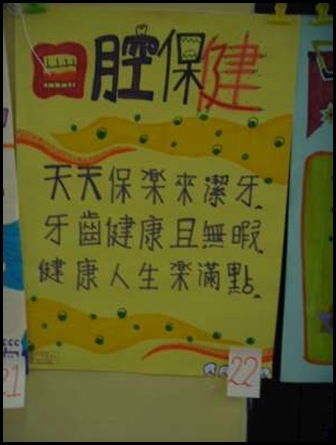 口腔保健
天天保樂來潔牙
牙齒健康且無暇
健康人生樂滿點
22
21